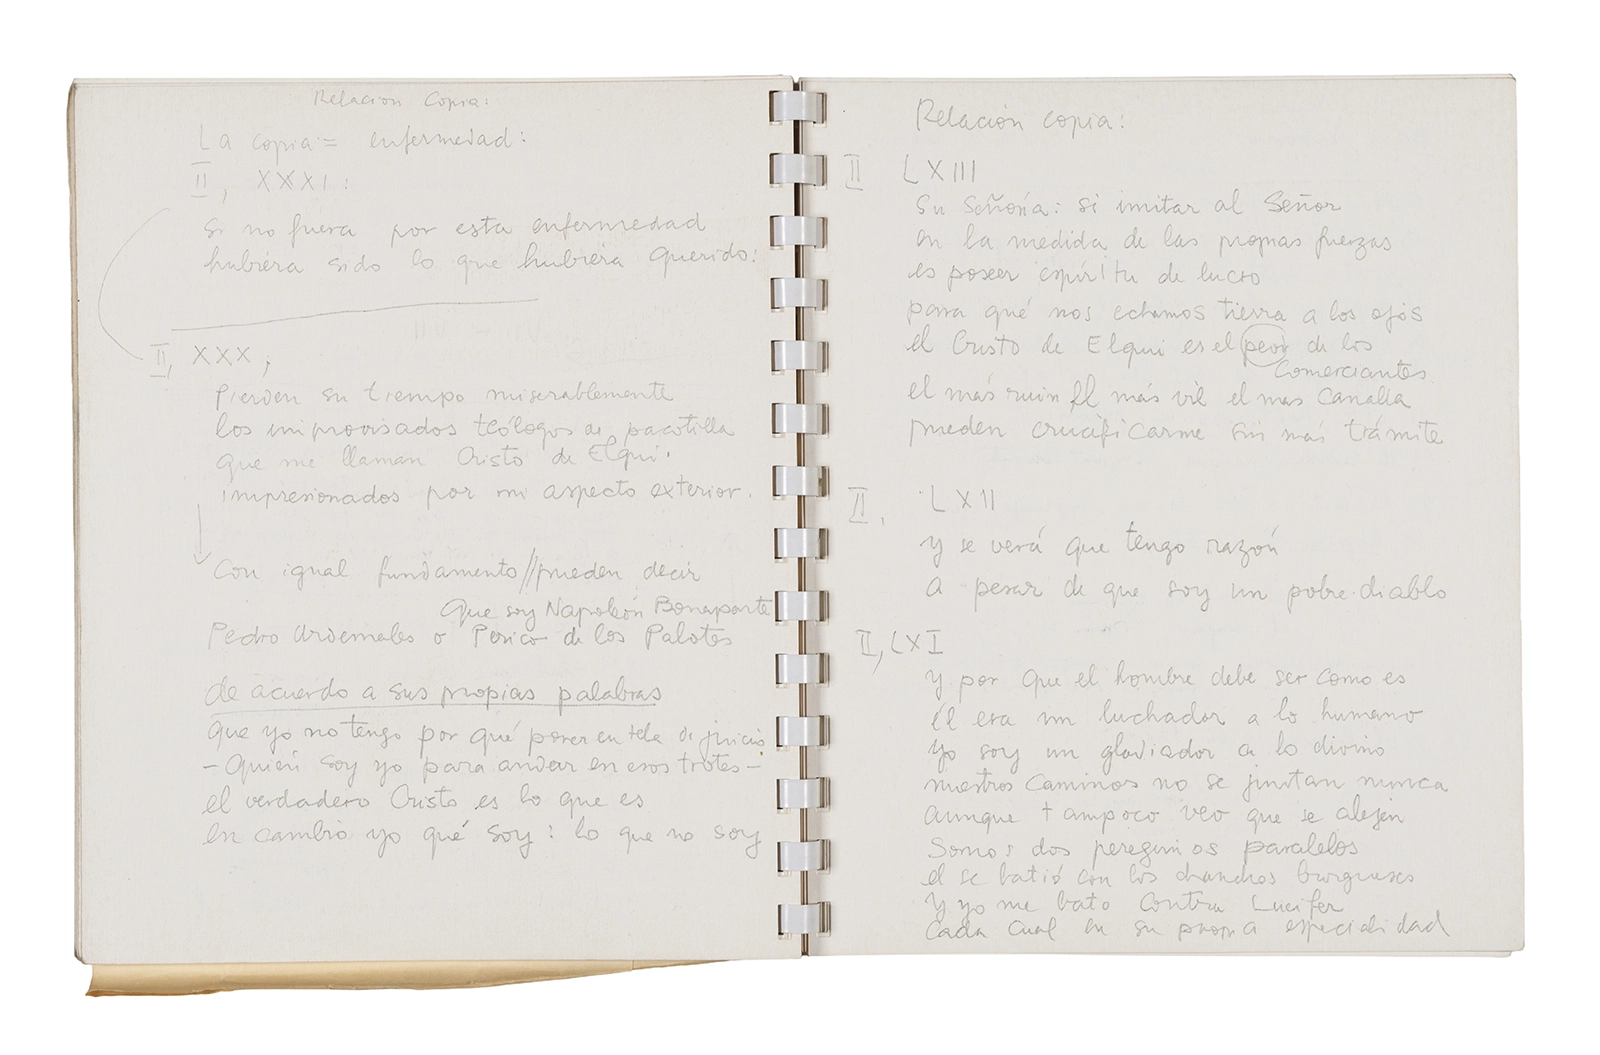 Relacion Copia:
La copia = enfermedad:
II, XXXI:
Si no fuera por esta enfermedad
hubiera sido lo que hubiera querido:
II, XXX;
Pierden su tiempo miserablemente
los improvisados teólogos de pacotilla
que me llaman Cristo de Elqui.
impresionados por mi aspecto exterior.
Con igual fundamento//pueden decir
Que soy Napoleón Bonaparte
Pedro Urdemales o Perico de los Palotes
de acuerdo a sus propias palabras
que yo no tengo por qué poner en tela de juicio
– Quién soy yo para andar en esos trotes –
el verdadero Cristo es lo que es
en cambio yo qué soy: lo que no soy
Relación copia:
II LXIII
Su Señoría: si imitar al Señor
en la medida de las propias fuerzas
es poseer espíritu de lucro
para qué nos echamos tierra a los ojos
el Cristo de Elqui es el peor de los
Comerciantes
el más ruin el más vil el mas canalla
pueden crucificarme sin más trámite
II. LXII
y se verá que tengo razón
a pesar de que soy un pobre diablo
II, LXI
y por que el hombre debe ser como es
él era un luchador a lo humano
yo soy un gladiador a lo divino
nuestros caminos no se juntan nunca
aunque tampoco veo que se alejen
Somos dos peregrinos paralelos
el se batió con los chanchos burgueses
y yo me bato contra Lucifer
cada cual en su propia especialidad